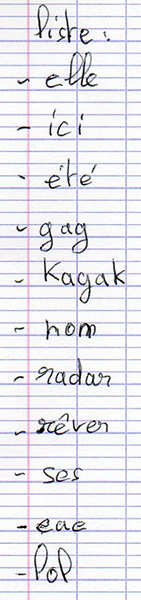 liste :
- elle
- ici
- été
- gag
- Kagak
- nom
- radar
- rêver
- ses
- eae
- Pop